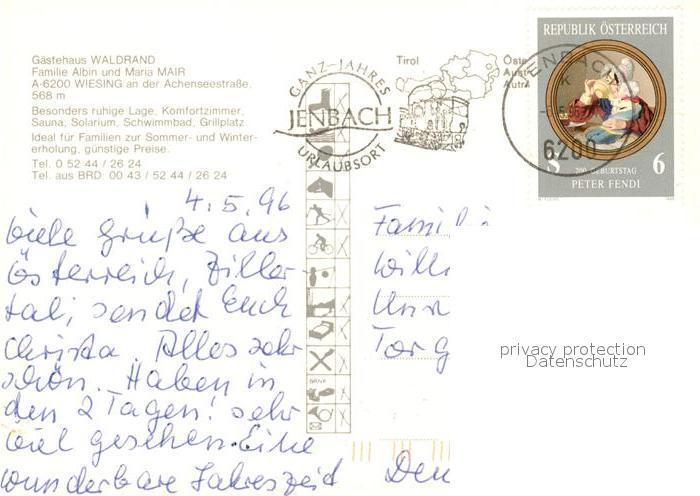 Gästehaus WALDRAND
Familie Albin und Maria MAIR
A-6200 WIESING an der Achenseestraße.
568 m
Besonders ruhige Lage, Komfortzimmer,
Sauna, Solarium, Schwimmbad, Grillplatz.
Ideal für Familien zur Sommer- und Winter-
erholung, günstige Preise.
Tel. 0 52 44 / 26 24
Tel. aus BRD: 00 43 / 52 44 / 26 24
GANZ-JAHRES
JENBACH
URLAUBSORT
Tirol
Öste
Austr
Autri
JENBACH
6200
REPUBLIK ÖSTERREICH
S 6
200. GEBURTSTAG
PETER FENDI
4.5.96
Viele Grüße aus
Österreich, Ziller-
tal, sendet Euch
Christa. Alles sehr
schön. Haben in
den 2 Tagen! sehr
viel gesehen. Eine
wunderbare Jahreszeit
Famili
Willi
Tor g
Den
privacy protection
Datenschutz